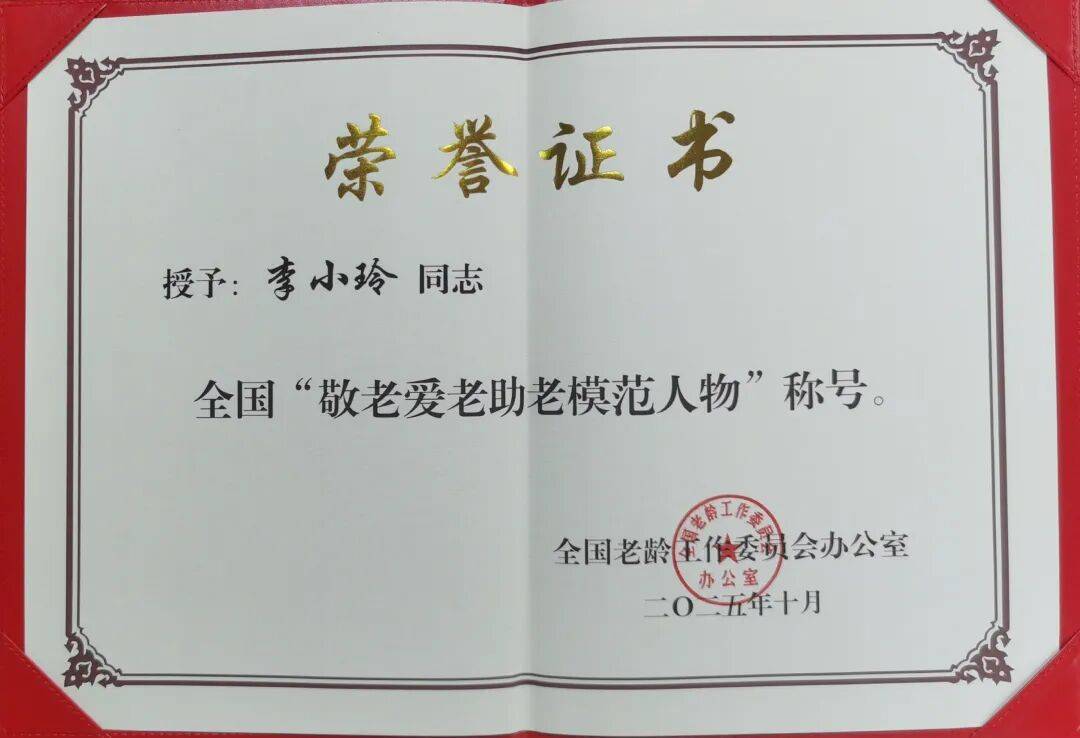 荣誉证书
授予：李小玲 同志
全国“敬老爱老助老模范人物”称号。
全国老龄工作委员会办公室
二〇二五年十月
全国老龄工作委员会
办公室